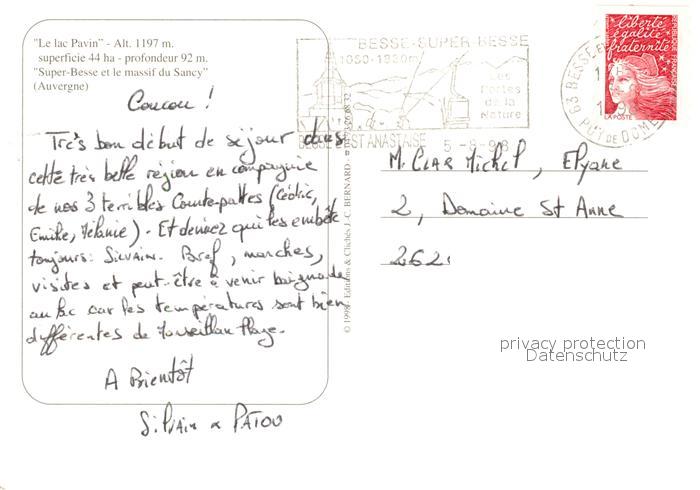 "Le lac Pavin" - Alt. 1197 m.
superficie 44 ha - profondeur 92 m.
"Super-Besse et le massif du Sancy"
(Auvergne)
Coucou !
Très bon début de séjour dans
cette très belle région en compagnie
de nos 3 terribles Courte-pattes (Cédric,
Emilie, Mélanie). Et devinez qui les embête
toujours: Silvain. Bref, marches,
visites et peut-être à venir baignade
au lac car les températures sont bien
différentes de Marseillan Plage.
A Bientôt
Silvain & PATOU
© 1998 - Editions & Clichés J.-C. BERNARD -
BESSE-SUPER BESSE
1050-1850m
Les
Portes
de la
Nature
BESSE EST ANASTAISE 5-8-98
63 BESSE
PUY de DOME
liberté
égalité
fraternité
REPUBLIQUE FRANÇAISE
LA POSTE
M. CLAR Michel, Elyane
2, Domaine St Anne
262
privacy protection
Datenschutz